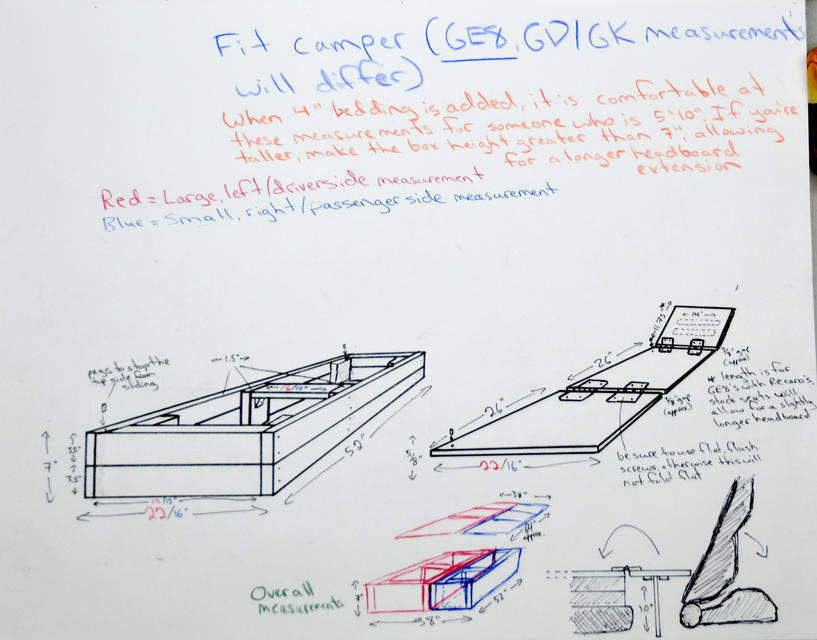 Fit camper (GE8, GD/GK measurements
will differ)
When 4" bedding is added, it is comfortable at
these measurements for someone who is 5'10". If you're
taller, make the box height greater than 7", allowing
for a longer headboard
extension
Red = Large, left/driverside measurement
Blue = Small, right/passenger side measurement
pegs to stop the
top side from
sliding
1.5"
7"
3.5"
3.5"
22/16"
52"
26"
26"
11.75"
14"
3/8" gap
(approx)
3/8" gap
(approx)
* length is for
GE8's with Recaro's,
stock seats will
allow for a slightly
longer headboard
5/8"
22/16"
be sure to use flat, flush
screws, otherwise this will
not fold flat
38"
64"
approx.
Overall
measurements
7"
38"
52"
10"